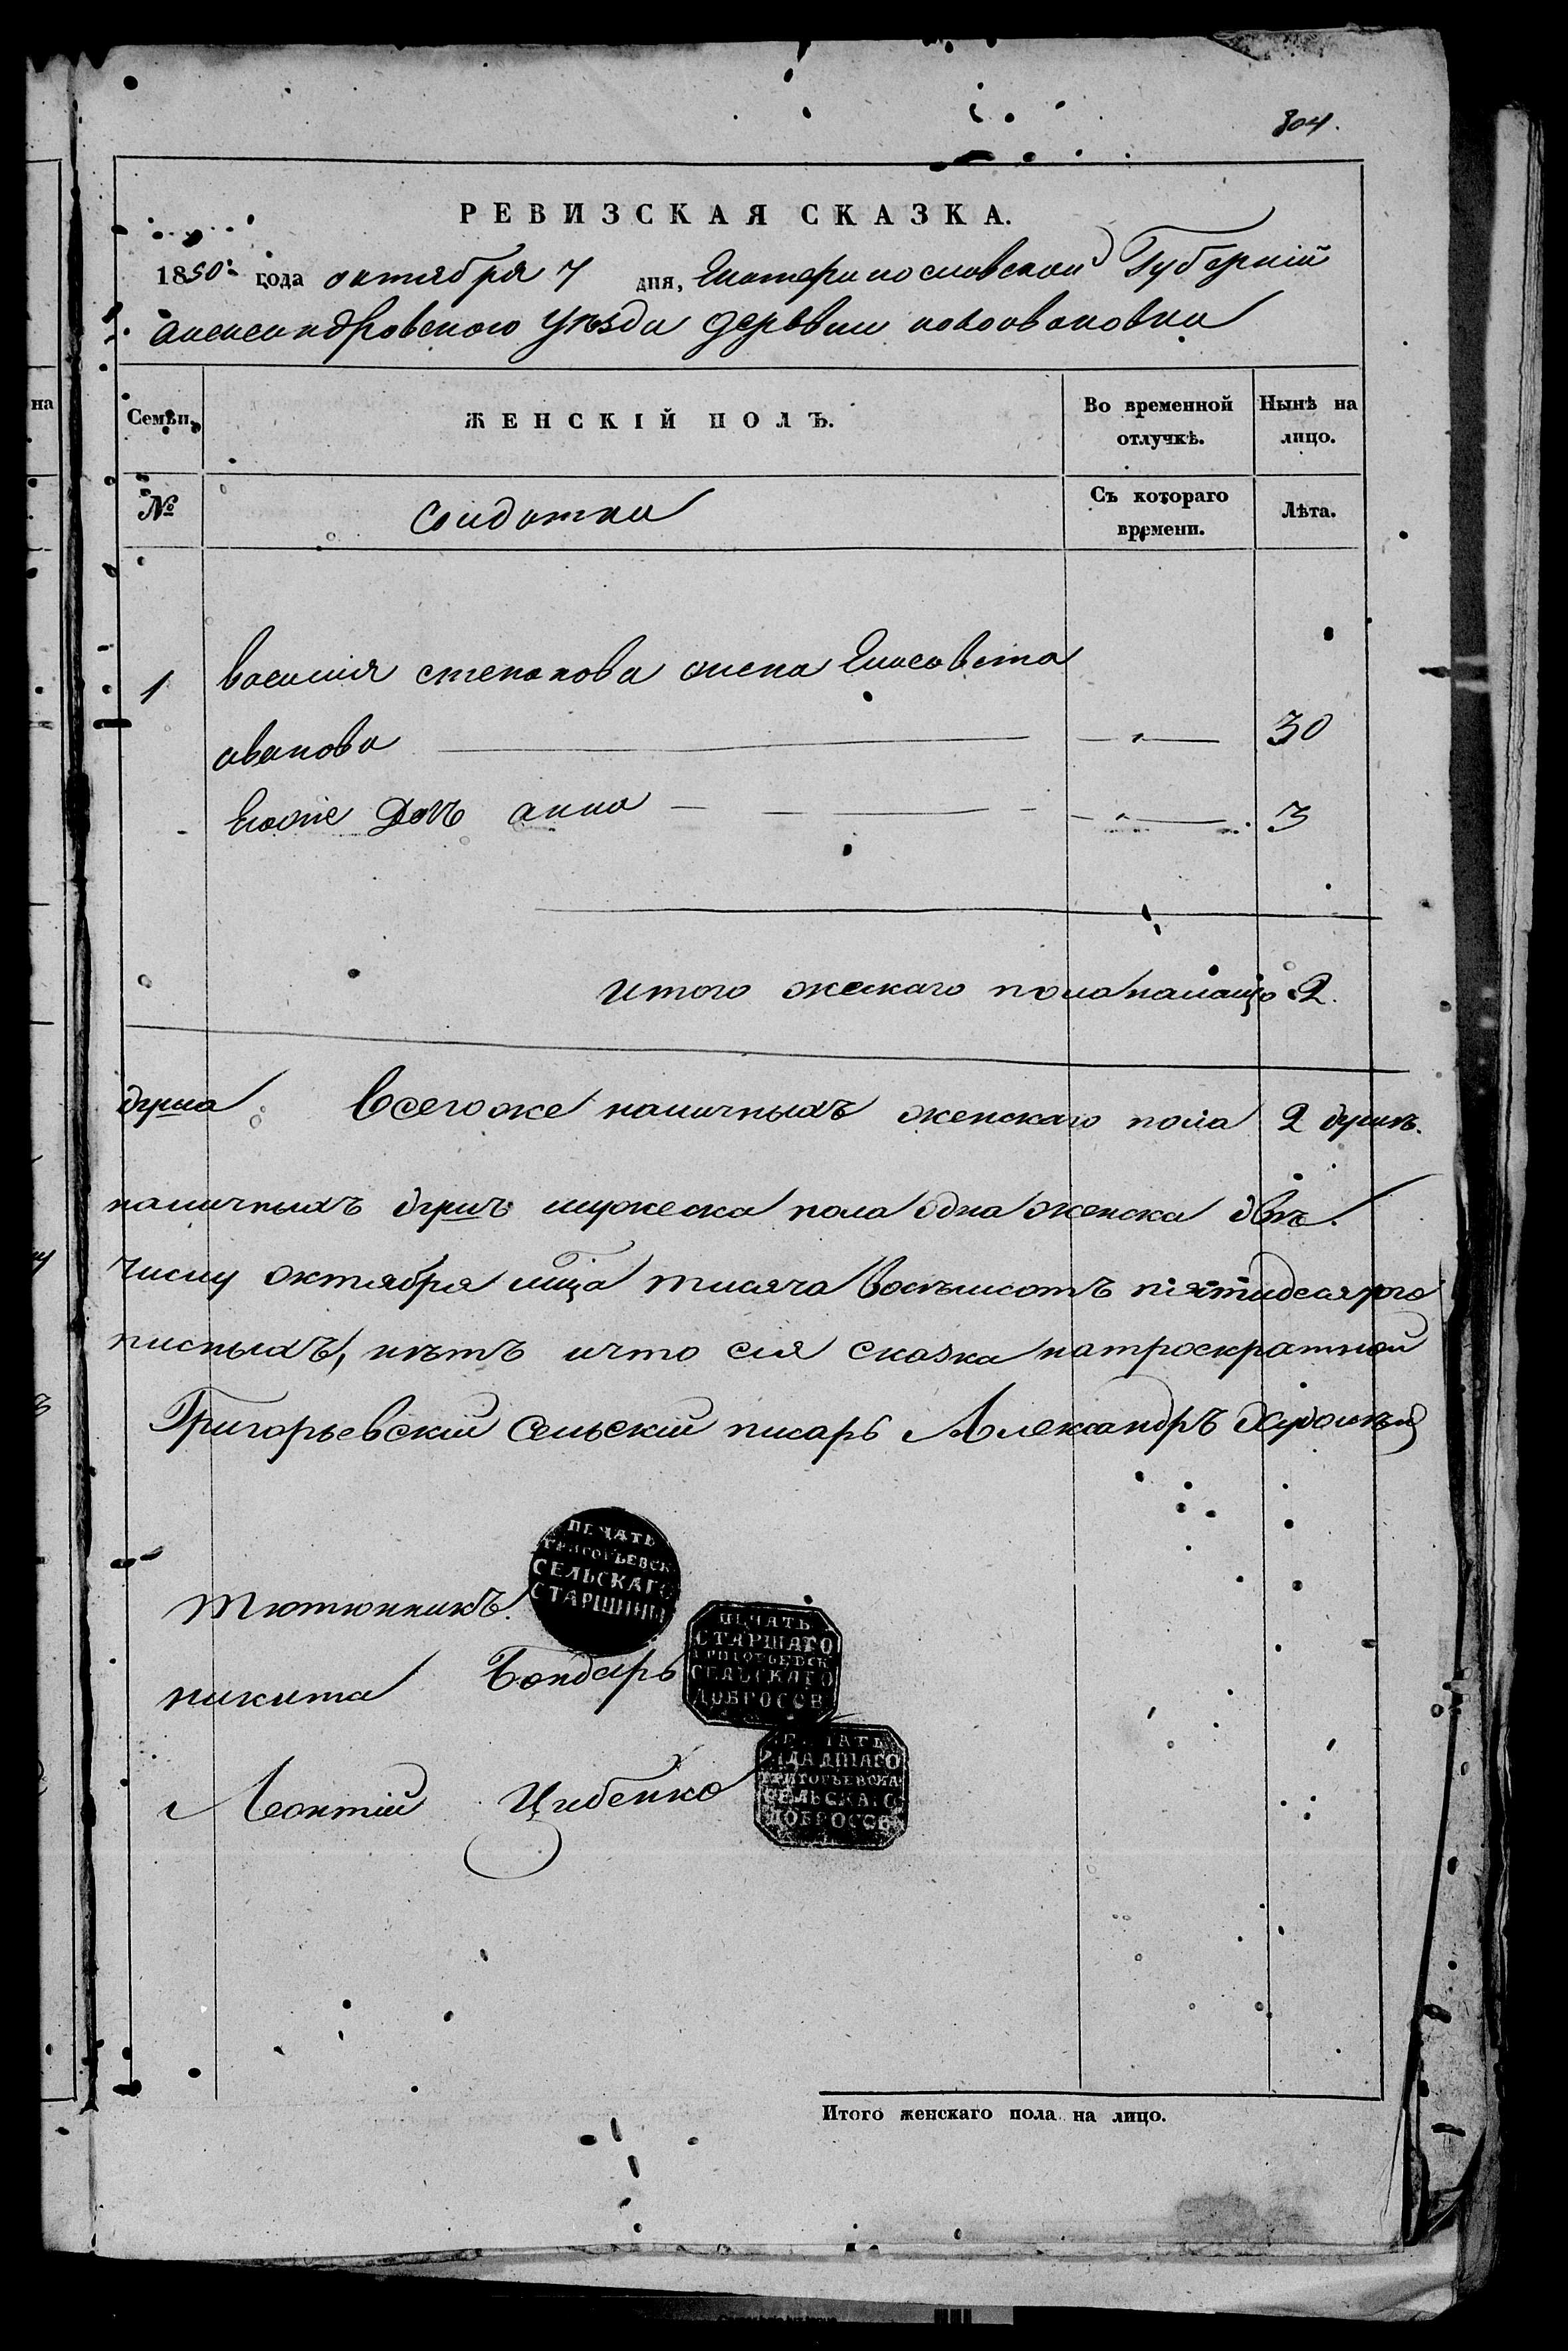 304.
РЕВИЗСКАЯ СКАЗКА.
1850: года октября 7 дня, Екатеринославской Губерніи
александровского уѣзда деревни новоивановки
Семьи. ЖЕНСКІЙ ПОЛЪ. Во временной отлучкѣ. Нынѣ на лицо.
№ Солдатки Съ котораго времени. Лѣта.
1 василия степанова жена Елисавета
иванова — " — 30
Еяже Дочь анна — " — 3
итого жескаго пола налицо 2.
душа Всегоже наличныхъ женскаго пола 2 душъ.
наличныхъ душъ мужеска пола одна женска двѣ.
числу октября мца тисяча восемьсотъ пятидесятого
писныхъ, нѣтъ ичто сия сказка натроекратной
Григорьевскій Сельскій писарь Александръ
ПЕЧАТЬ ГРИГОРЬЕВСК СЕЛЬСКАГО СТАРШИНЫ
тютюнникъ.
никита Бондарь
ПЕЧАТЬ СТАРШАГО ГРИГОРЬЕВСК СЕЛЬСКАГО ДОБРОСОВ
Леонтій Цибенко
ПЕЧАТЬ МЛАДШАГО ГРИГОРЬЕВСКА СЕЛЬСКАГО ДОБРОСОВ
Итого женскаго пола на лицо.
на